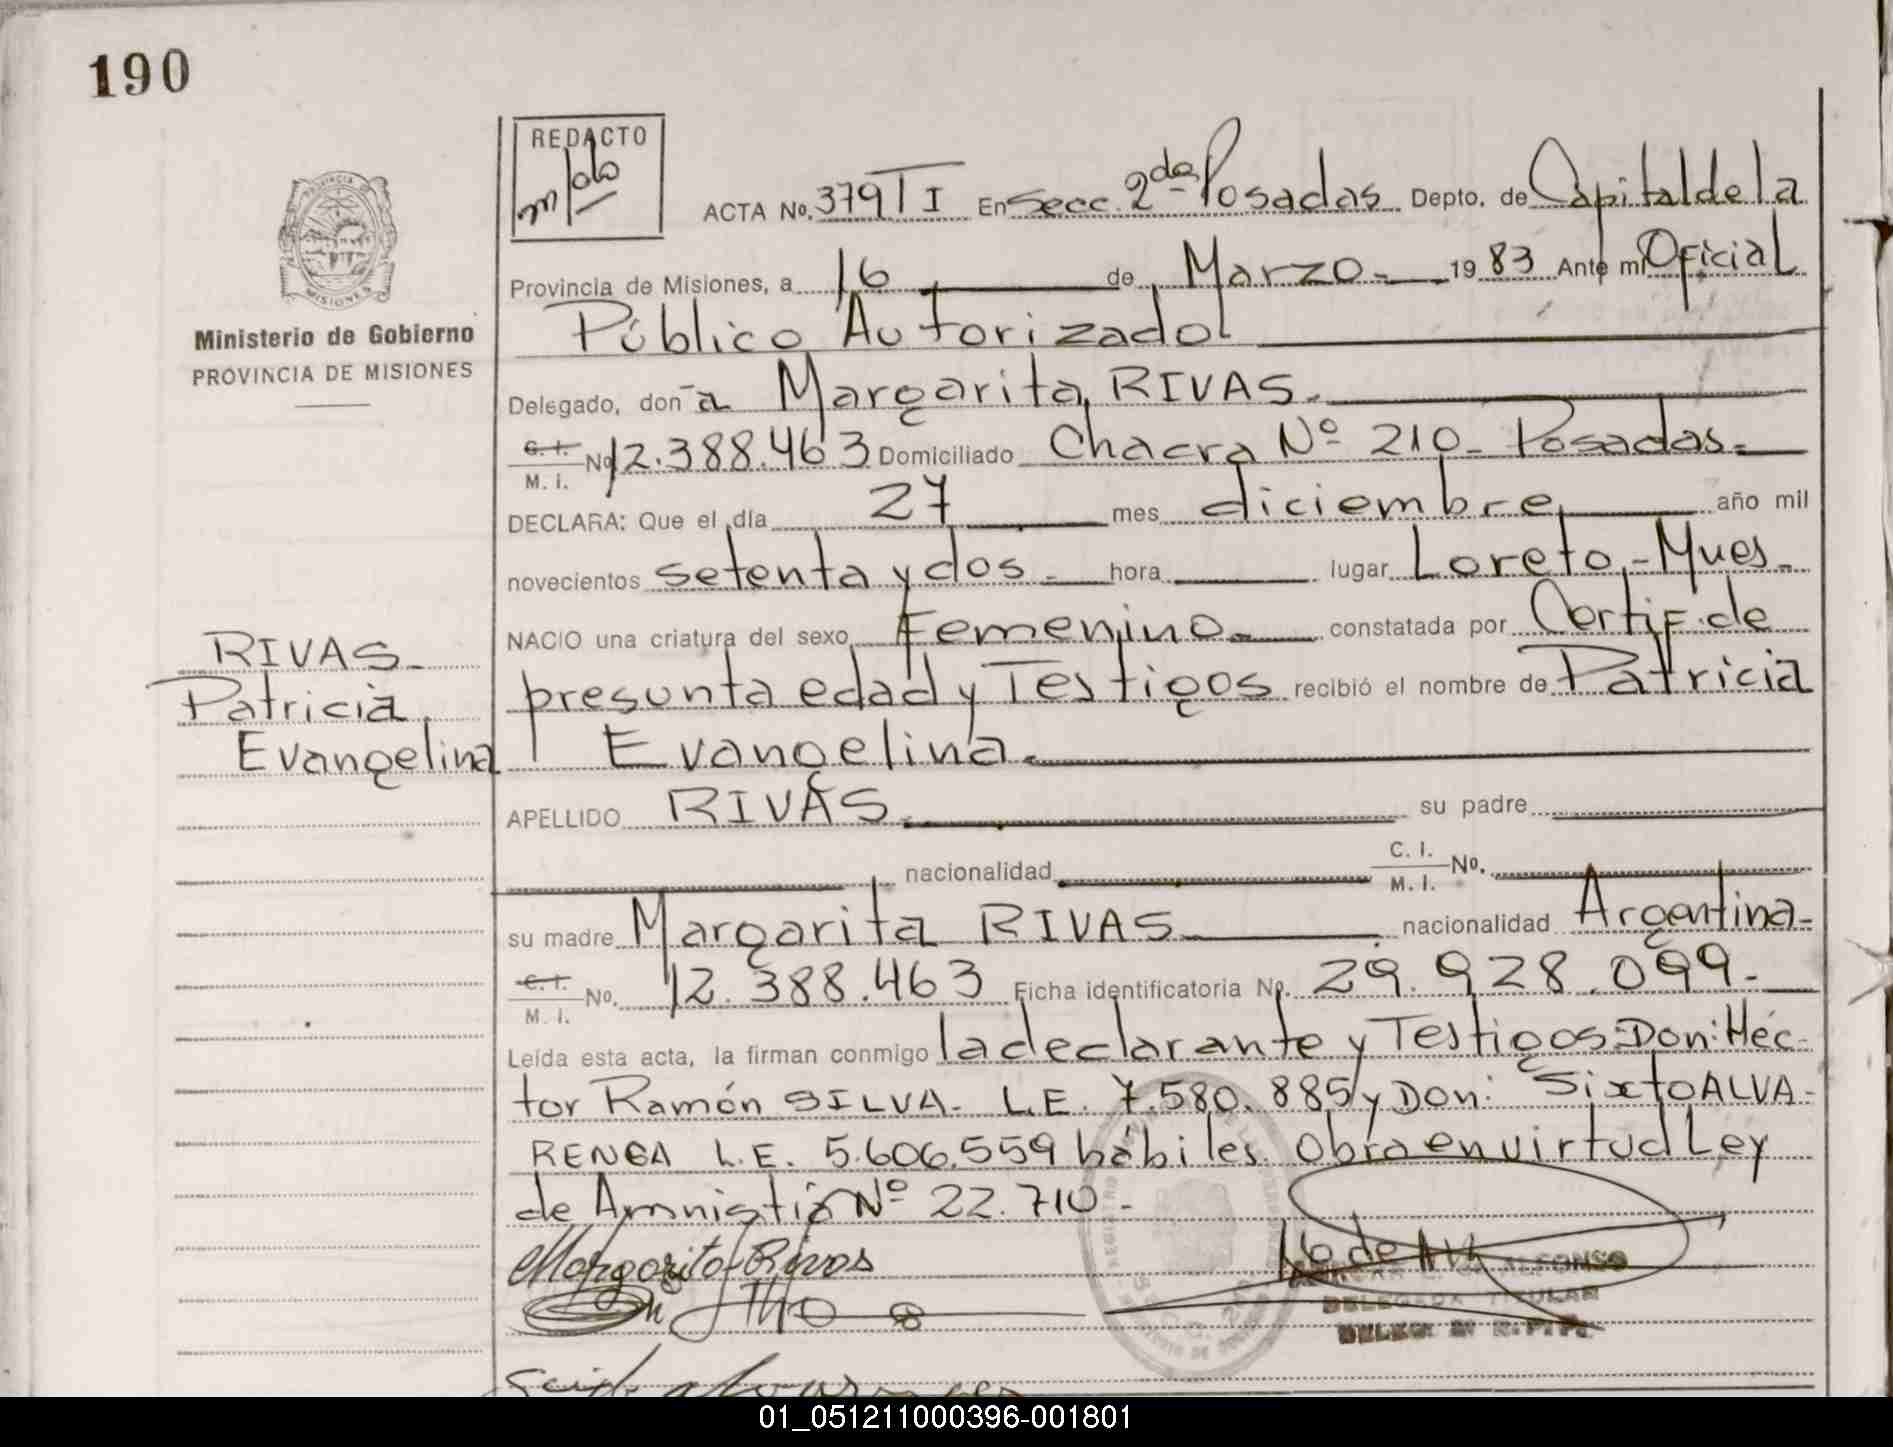 190
REDACTO
ACTA No. 379 T I En Secc. 2da Posadas Depto. de Capital de la
Provincia de Misiones, a 16 de Marzo.- 1983 Ante mi Oficial
Público Autorizado
Ministerio de Gobierno
PROVINCIA DE MISIONES
Delegado, don a Margarita RIVAS.
C. I. M. I. No 12.388.463 Domiciliado Chacra Nº 210- Posadas.-
DECLARA: Que el día 27 mes diciembre año mil
novecientos setenta y dos.- hora lugar Loreto,-Mnes.-
NACIO una criatura del sexo Femenino.- constatada por Certif. de
RIVAS.-
Patricia
Evangelina
presunta edad y Testigos recibió el nombre de Patricia
Evangelina.
APELLIDO RIVAS. su padre
nacionalidad C. I. M. I. No.
su madre Margarita RIVAS nacionalidad Argentina-
C. I. M. I. No. 12.388.463 Ficha identificatoria No. 29.928.099.-
Leída esta acta, la firman conmigo la declarante y Testigos: Don: Héc-
tor Ramón SILVA.- L.E. 7.580.885 y Don: Sixto ALVA-
RENGA L.E. 5.606.559 hábiles. Obra en virtud Ley
de Amnistía Nº 22.710.-
Margarita Rivas
ALFONSO
DELEGADA TITULAR
01_051211000396-001801